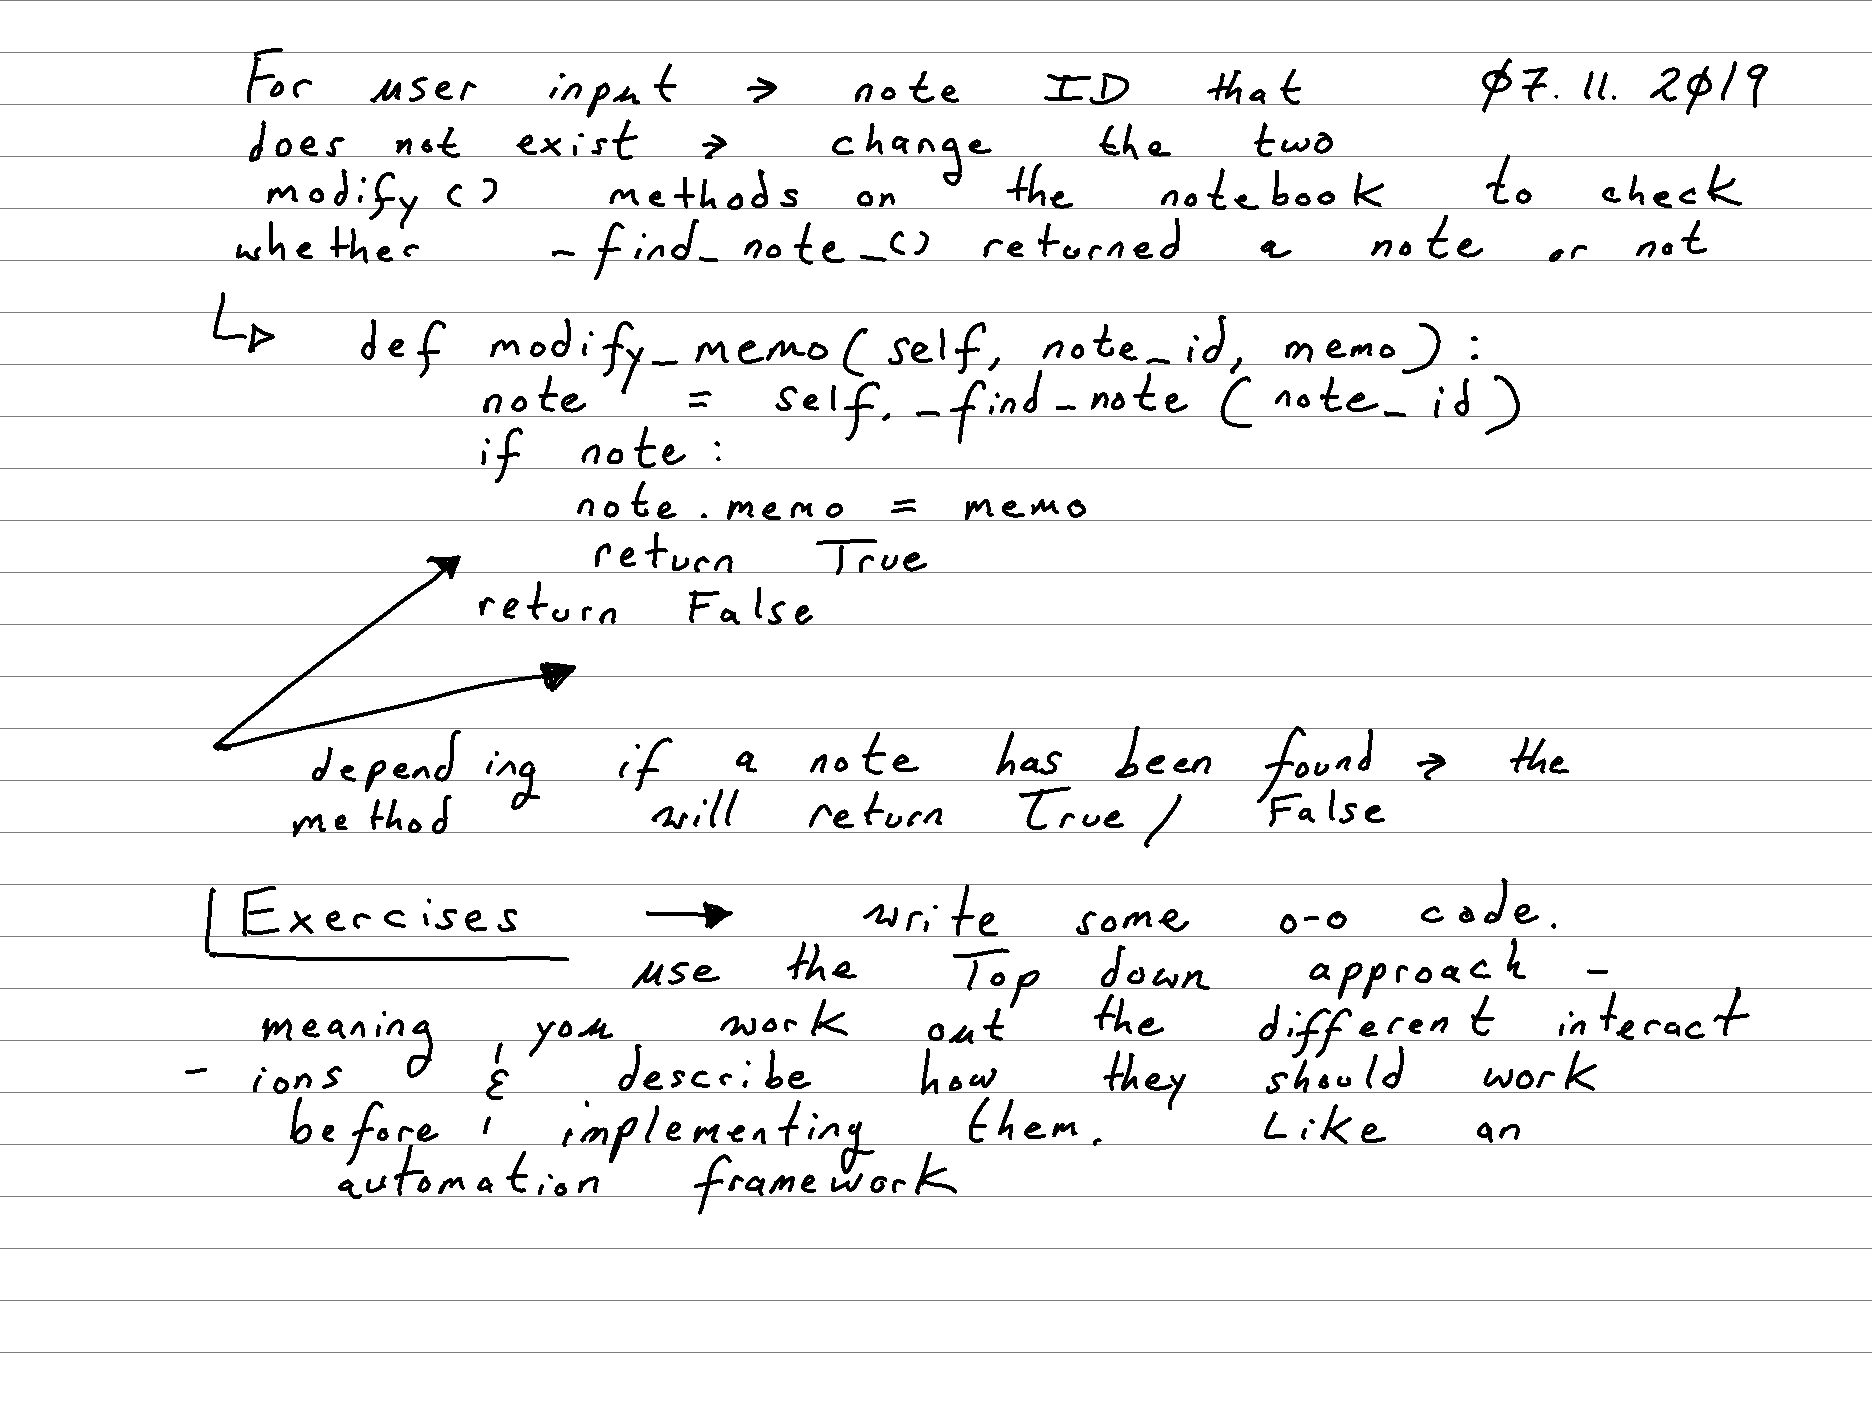 For user input → note ID that 07.11.2019
does not exist → change the two
modify() methods on the notebook to check
whether _find_note_() returned a note or not
def modify_memo(self, note_id, memo):
note = self._find_note(note_id)
if note:
note.memo = memo
return True
return False
depending if a note has been found → the
method will return True/ False
Exercises → write some o-o code.
use the Top down approach -
meaning, you work out the different interact
- ions & describe how they should work
before implementing them. Like an
automation framework